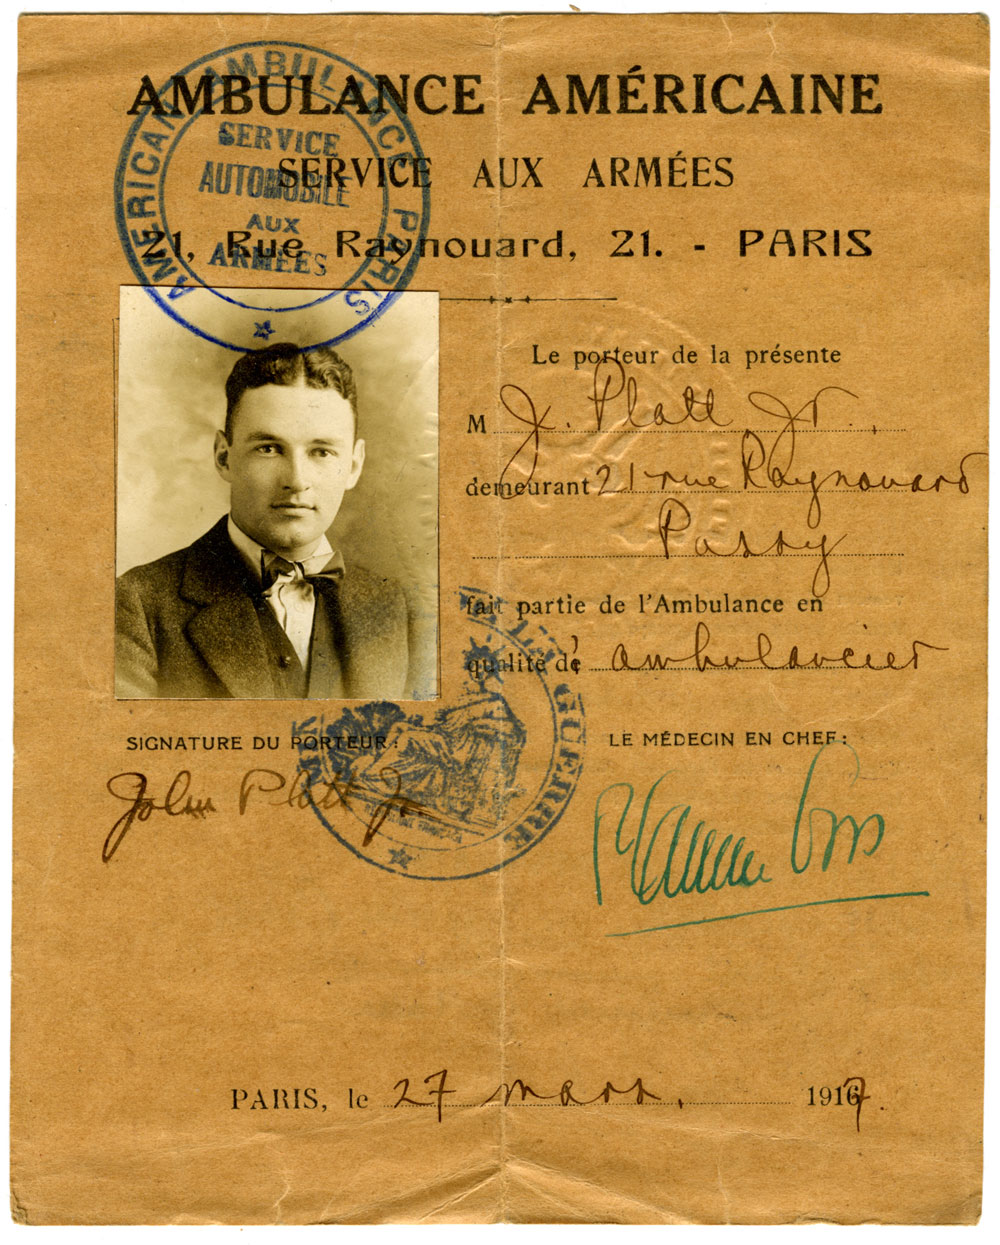 AMBULANCE AMÉRICAINE
SERVICE AUX ARMÉES
21, Rue Raynouard, 21. - PARIS
AMERICAN AMBULANCE PARIS
SERVICE
AUTOMOBILE
AUX
ARMÉES
Le porteur de la présente
M J. Platt Jr.,
demeurant 21 rue Raynouard
Passy
fait partie de l'Ambulance en
qualité de ambulancier
LA GUERRE
SIGNATURE DU PORTEUR:
John Platt Jr
LE MÉDECIN EN CHEF:
PARIS, le 27 mars. 1917.